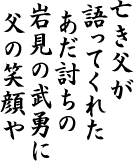 亡き父が
語ってくれた
あだ討ちの
岩見の武勇に
父の笑顔や